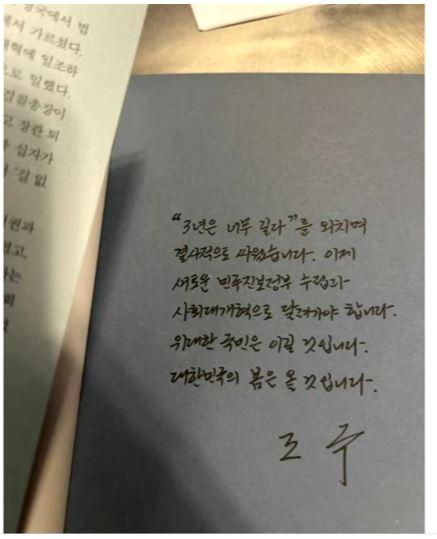 에서 가르쳤다.
개혁에 일조하
으로 일했다.
검찰총장이
고 장관 퇴
십자가
'길 없
"3년은 너무 길다"를 외치며
결사적으로 싸웠습니다. 이제
새로운 민주진보정부 수립과
사회대개혁으로 달려가야 합니다.
위대한 국민은 이길 것입니다.
대한민국의 봄은 올 것입니다.